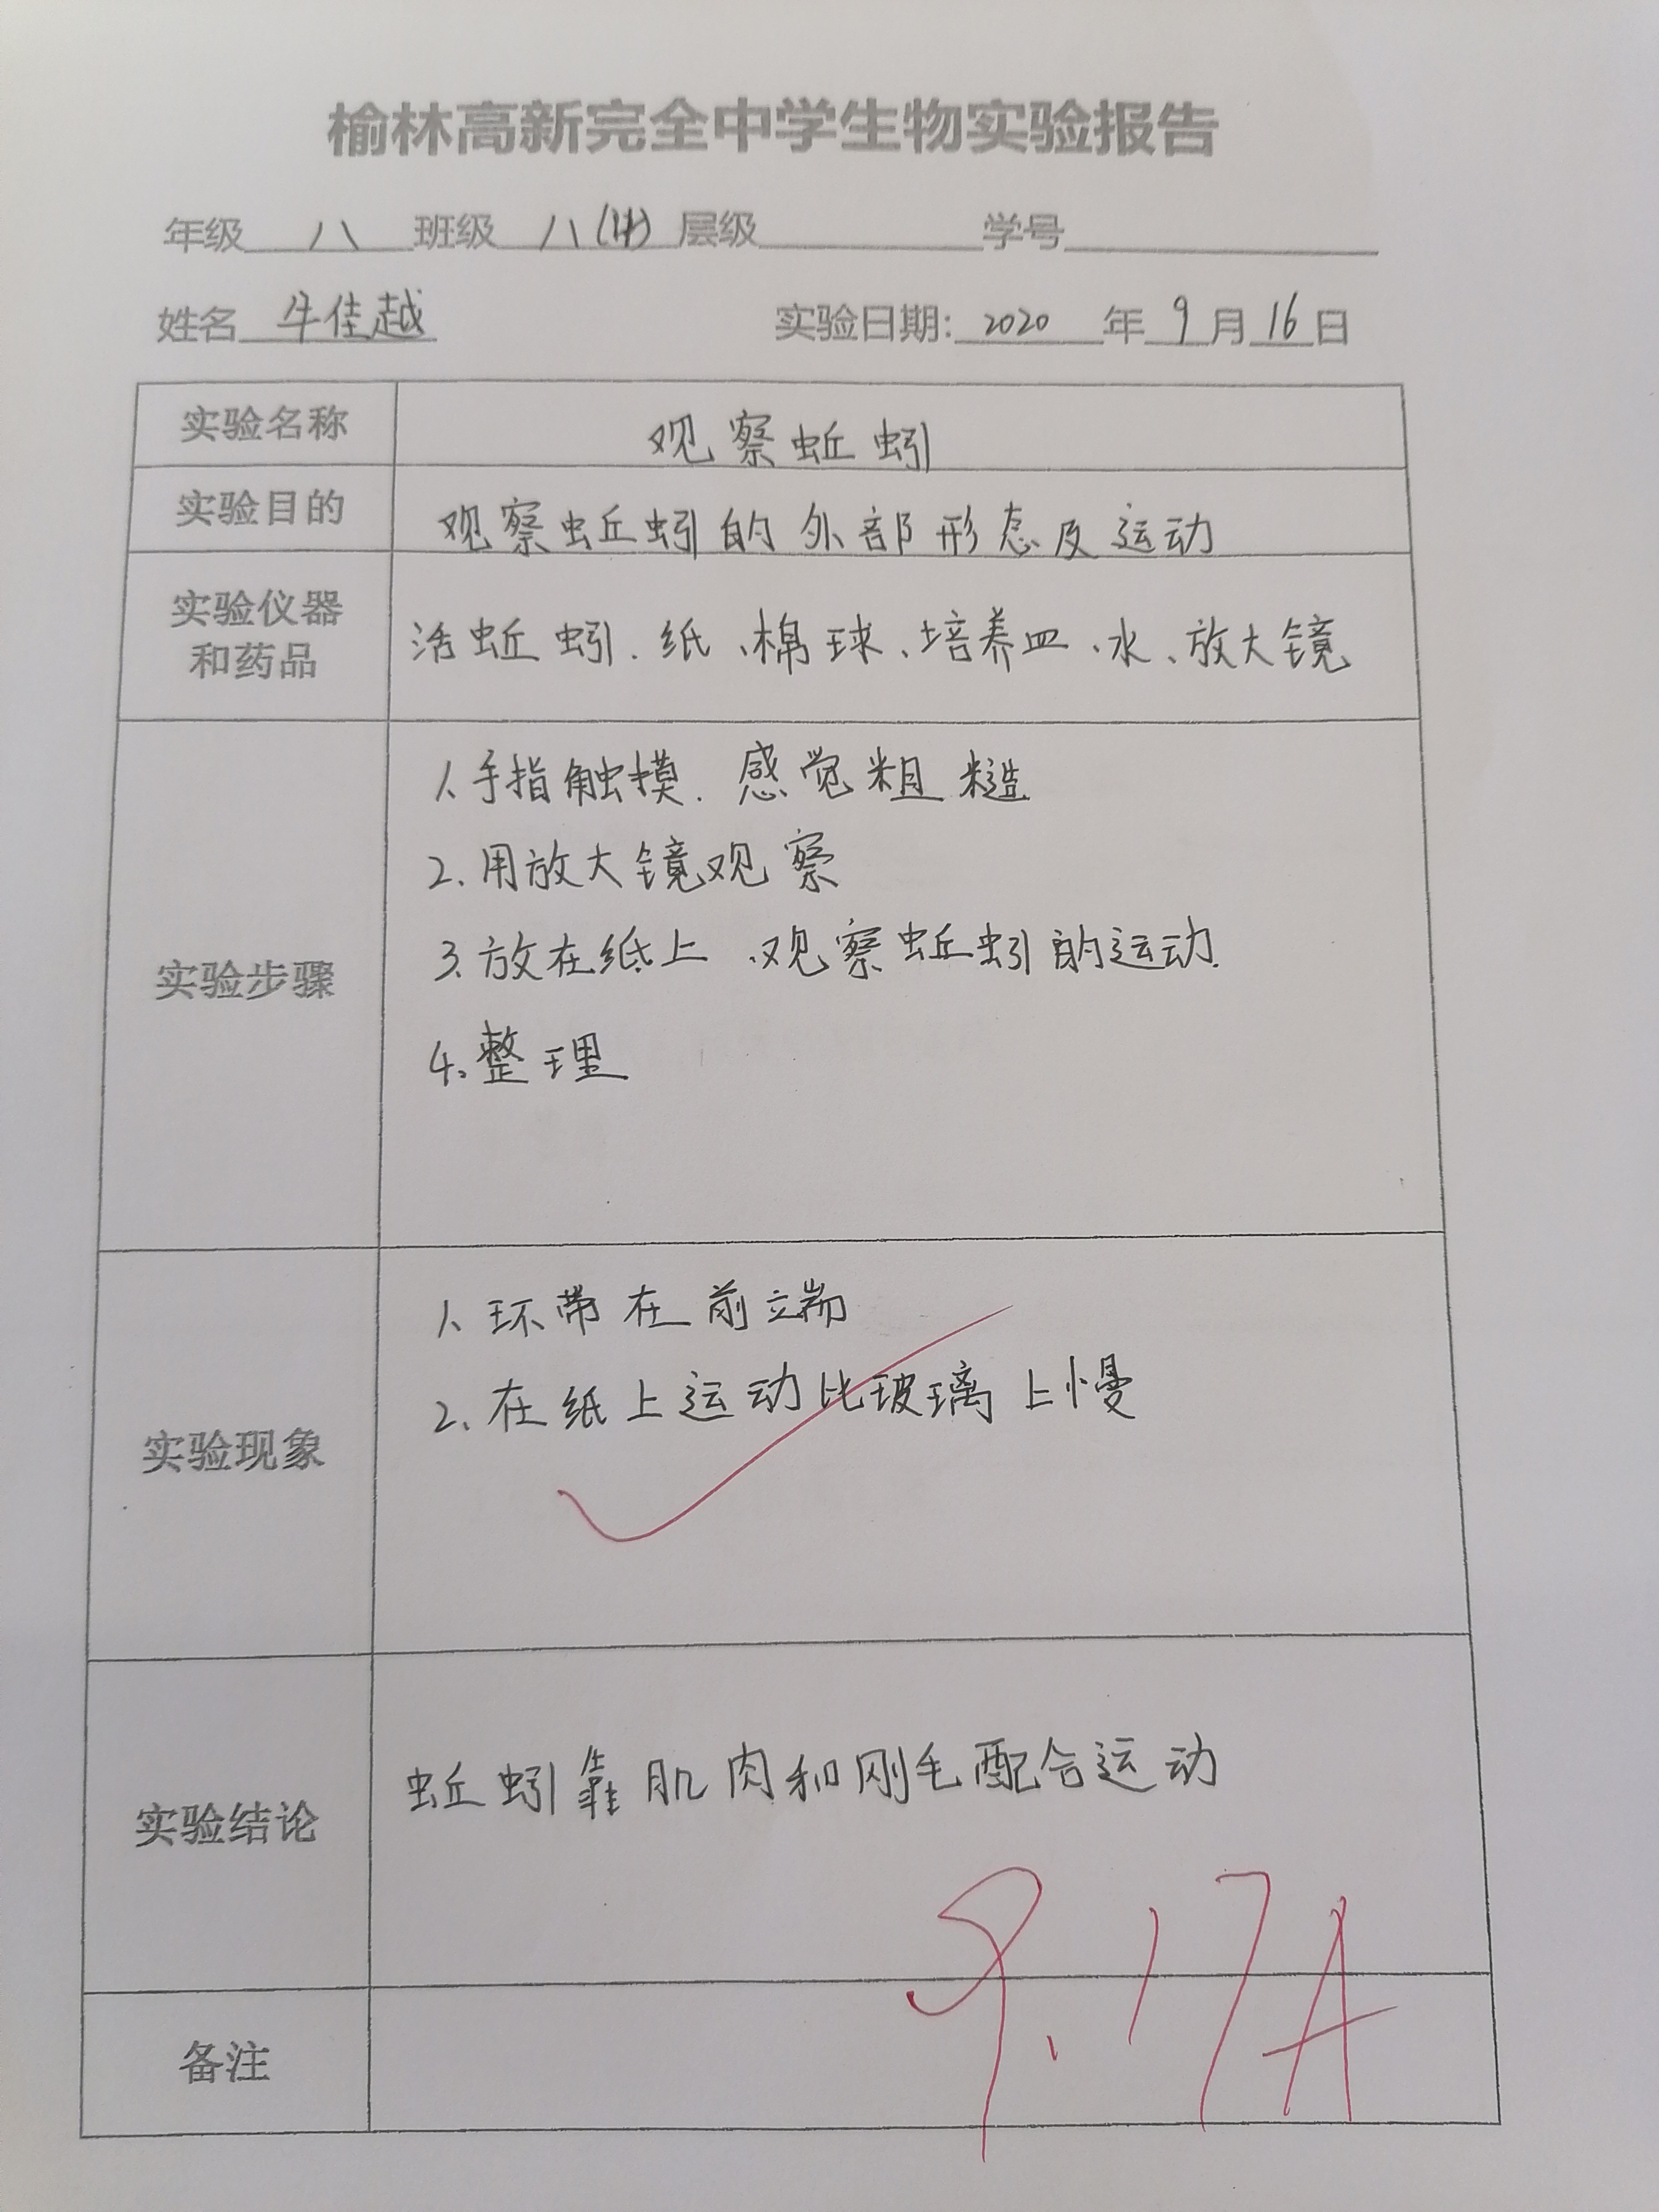 榆林高新完全中学生物实验报告
年级 八 班级 八(14) 层级 学号
姓名 牛佳越 实验日期: 2020 年 9 月 16 日
实验名称 观察蚯蚓
实验目的 观察蚯蚓的外部形态及运动
实验仪器
和药品
活蚯蚓、纸、棉球、培养皿、水、放大镜
实验步骤
1.手指触摸.感觉粗糙
2.用放大镜观察
3.放在纸上.观察蚯蚓的运动.
4.整理
实验现象
1.环带在前端
2.在纸上运动比玻璃上慢
实验结论
蚯蚓靠肌肉和刚毛配合运动
9.17 A
备注